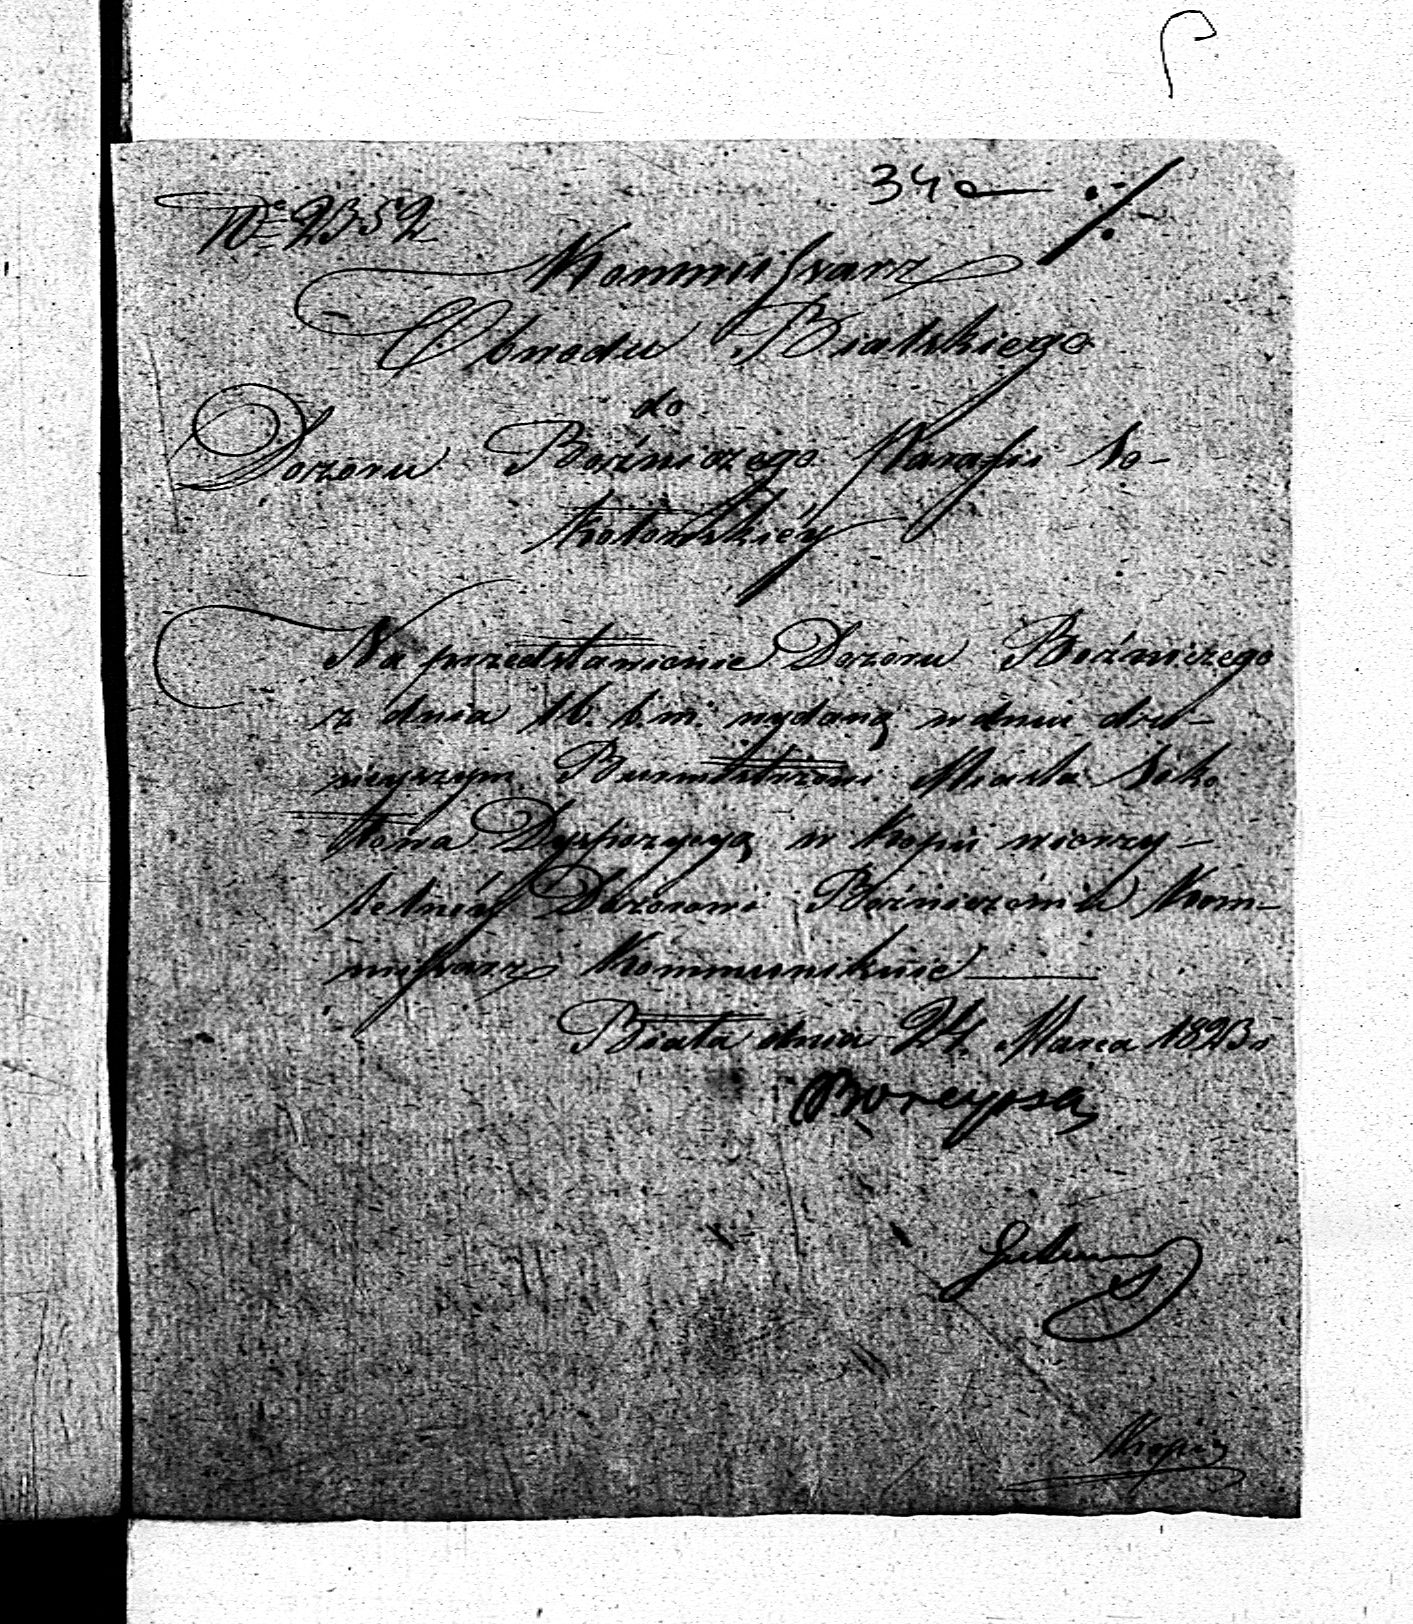 34
№ 2352
Kommissarz
Obwodu Bialskiego
do
Dozoru Bożniczego Parafii So-
kołowskiéy
Na przedstawienie Dozoru Bożniczego
z dnia 16. b. m. wydaną w dniu dzi-
sieyszym Burmistrzowi Miasta Soko
łowa Dyspozycyą w kopii wierzy-
telnéy Dozorowi Bożniczemu Kom-
missarz kommunikuie
Biała dnia 24. Marca 1823 r
Kopia